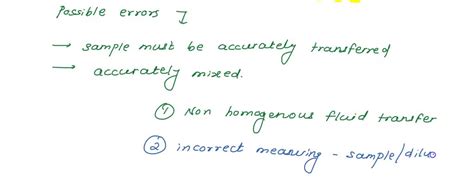 Possible errors
→ sample must be accurately transferred
→ accurately mixed.
① Non homogenous fluid transfer
② incorrect measuring - sample/diluo